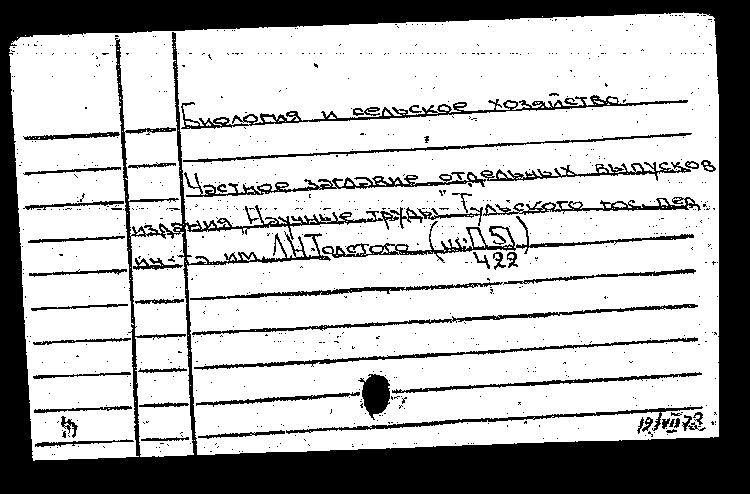 Биология и сельское хозяйство.
Частное заглавие отдельных выпусков
издания „Научные труды" Тульского гос. пед.
ин-та им. Л.Н.Толстого. (ш. П51)
422
19/VII 73